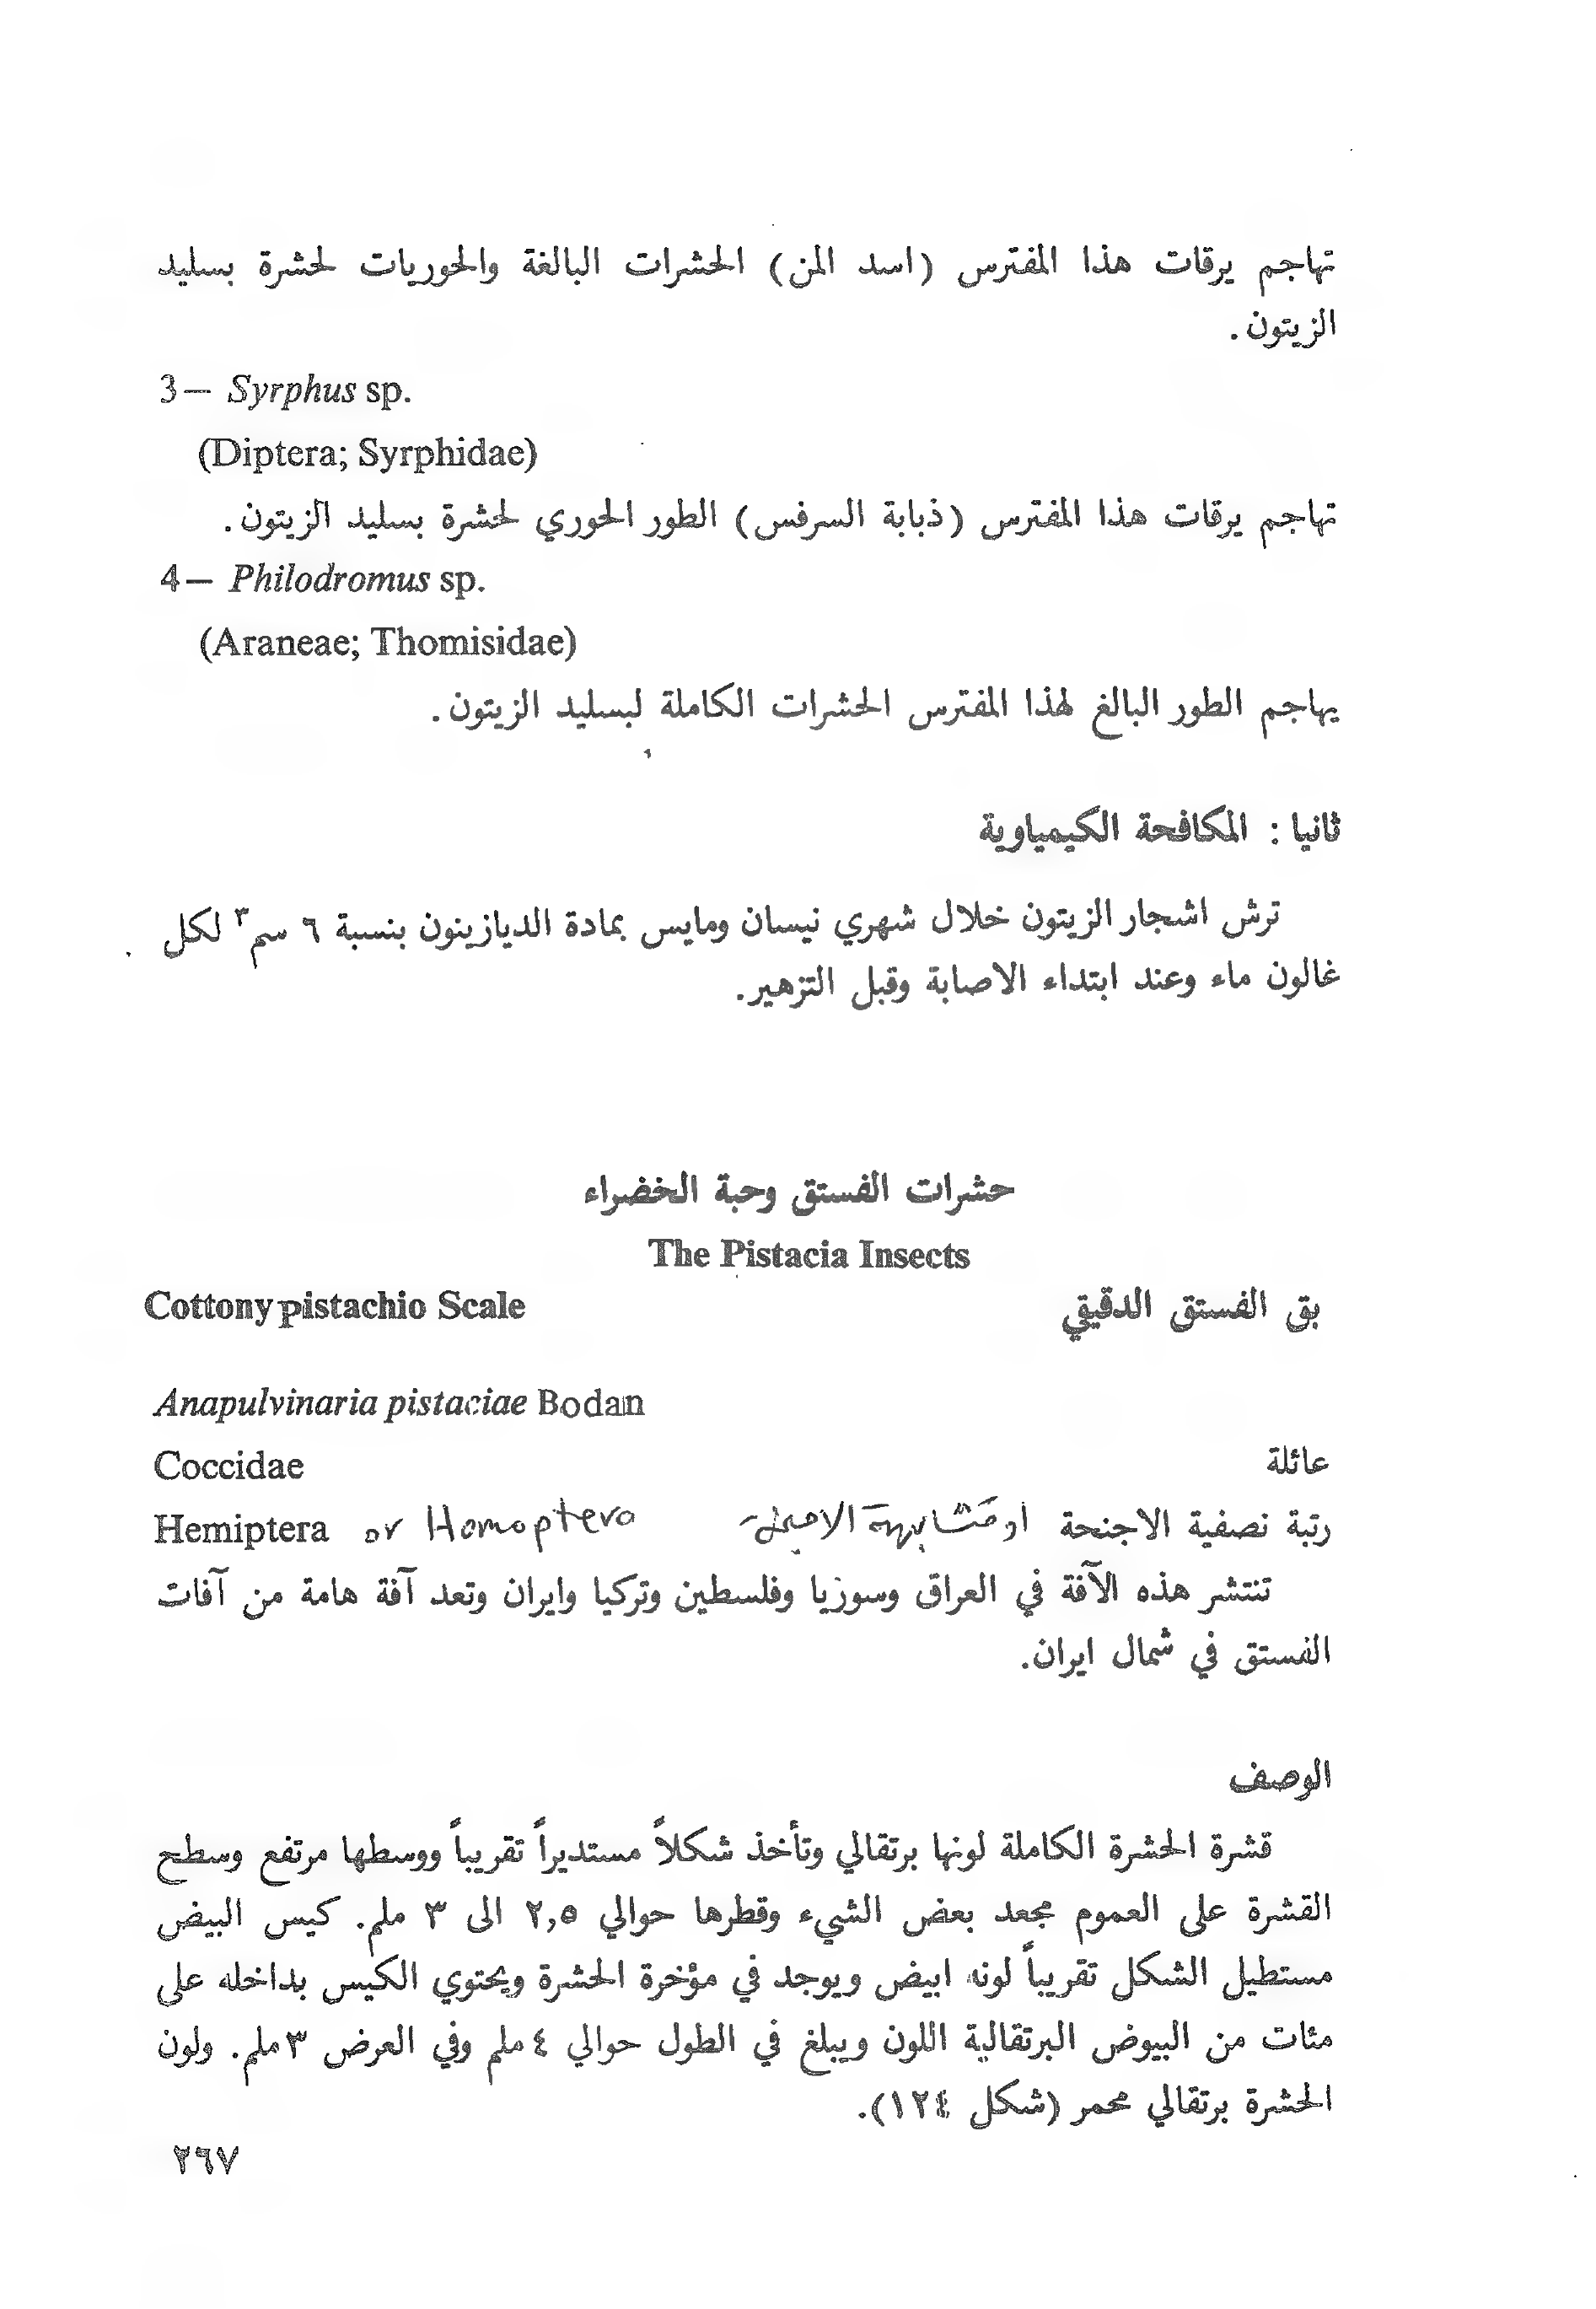 تهاجم يرقات هذا المفترس (اسد المن) الحشرات البالغة والحوريات لحشرة بسليد
الزيتون.
3— Syrphus sp.
(Diptera; Syrphidae)
تهاجم يرقات هذا المفترس (ذبابة السرفس) الطور الحوري لحشرة بسليد الزيتون.
4— Philodromus sp.
(Araneae; Thomisidae)
يهاجم الطور البالغ لهذا المفترس الحشرات الكاملة لبسليد الزيتون.
ثانيا : المكافحة الكيمياوية
ترش اشجار الزيتون خلال شهري نيسان ومايس بمادة الديازينون بنسبة ٦ سم٣ لكل
غالون ماء وعند ابتداء الاصابة وقبل التزهير.
حشرات الفستق وحبة الخضراء
The Pistacia Insects
بق الفستق الدقيقي Cottony pistachio Scale
Anapulvinaria pistaciae Bodan
عائلة Coccidae
رتبة نصفية الاجنحة او متشابهة الاجنحة Hemiptera or Homoptera
تنتشر هذه الآفة في العراق وسوزيا وفلسطين وتركيا وايران وتعد آفة هامة من آفات
الفستق في شمال ايران.
الوصف
قشرة الحشرة الكاملة لونها برتقالي وتأخذ شكلاً مستديراً تقريباً ووسطها مرتفع وسطح
القشرة على العموم مجعد بعض الشيء وقطرها حوالي ٢,٥ الى ٣ ملم. كيس البيض
مستطيل الشكل تقريباً لونه ابيض ويوجد في مؤخرة الحشرة ويحتوي الكيس بداخله على
مئات من البيوض البرتقالية اللون ويبلغ في الطول حوالي ٤ ملم وفي العرض ٣ ملم. ولون
الحشرة برتقالي محمر (شكل ١٢٤).
٢٦٧